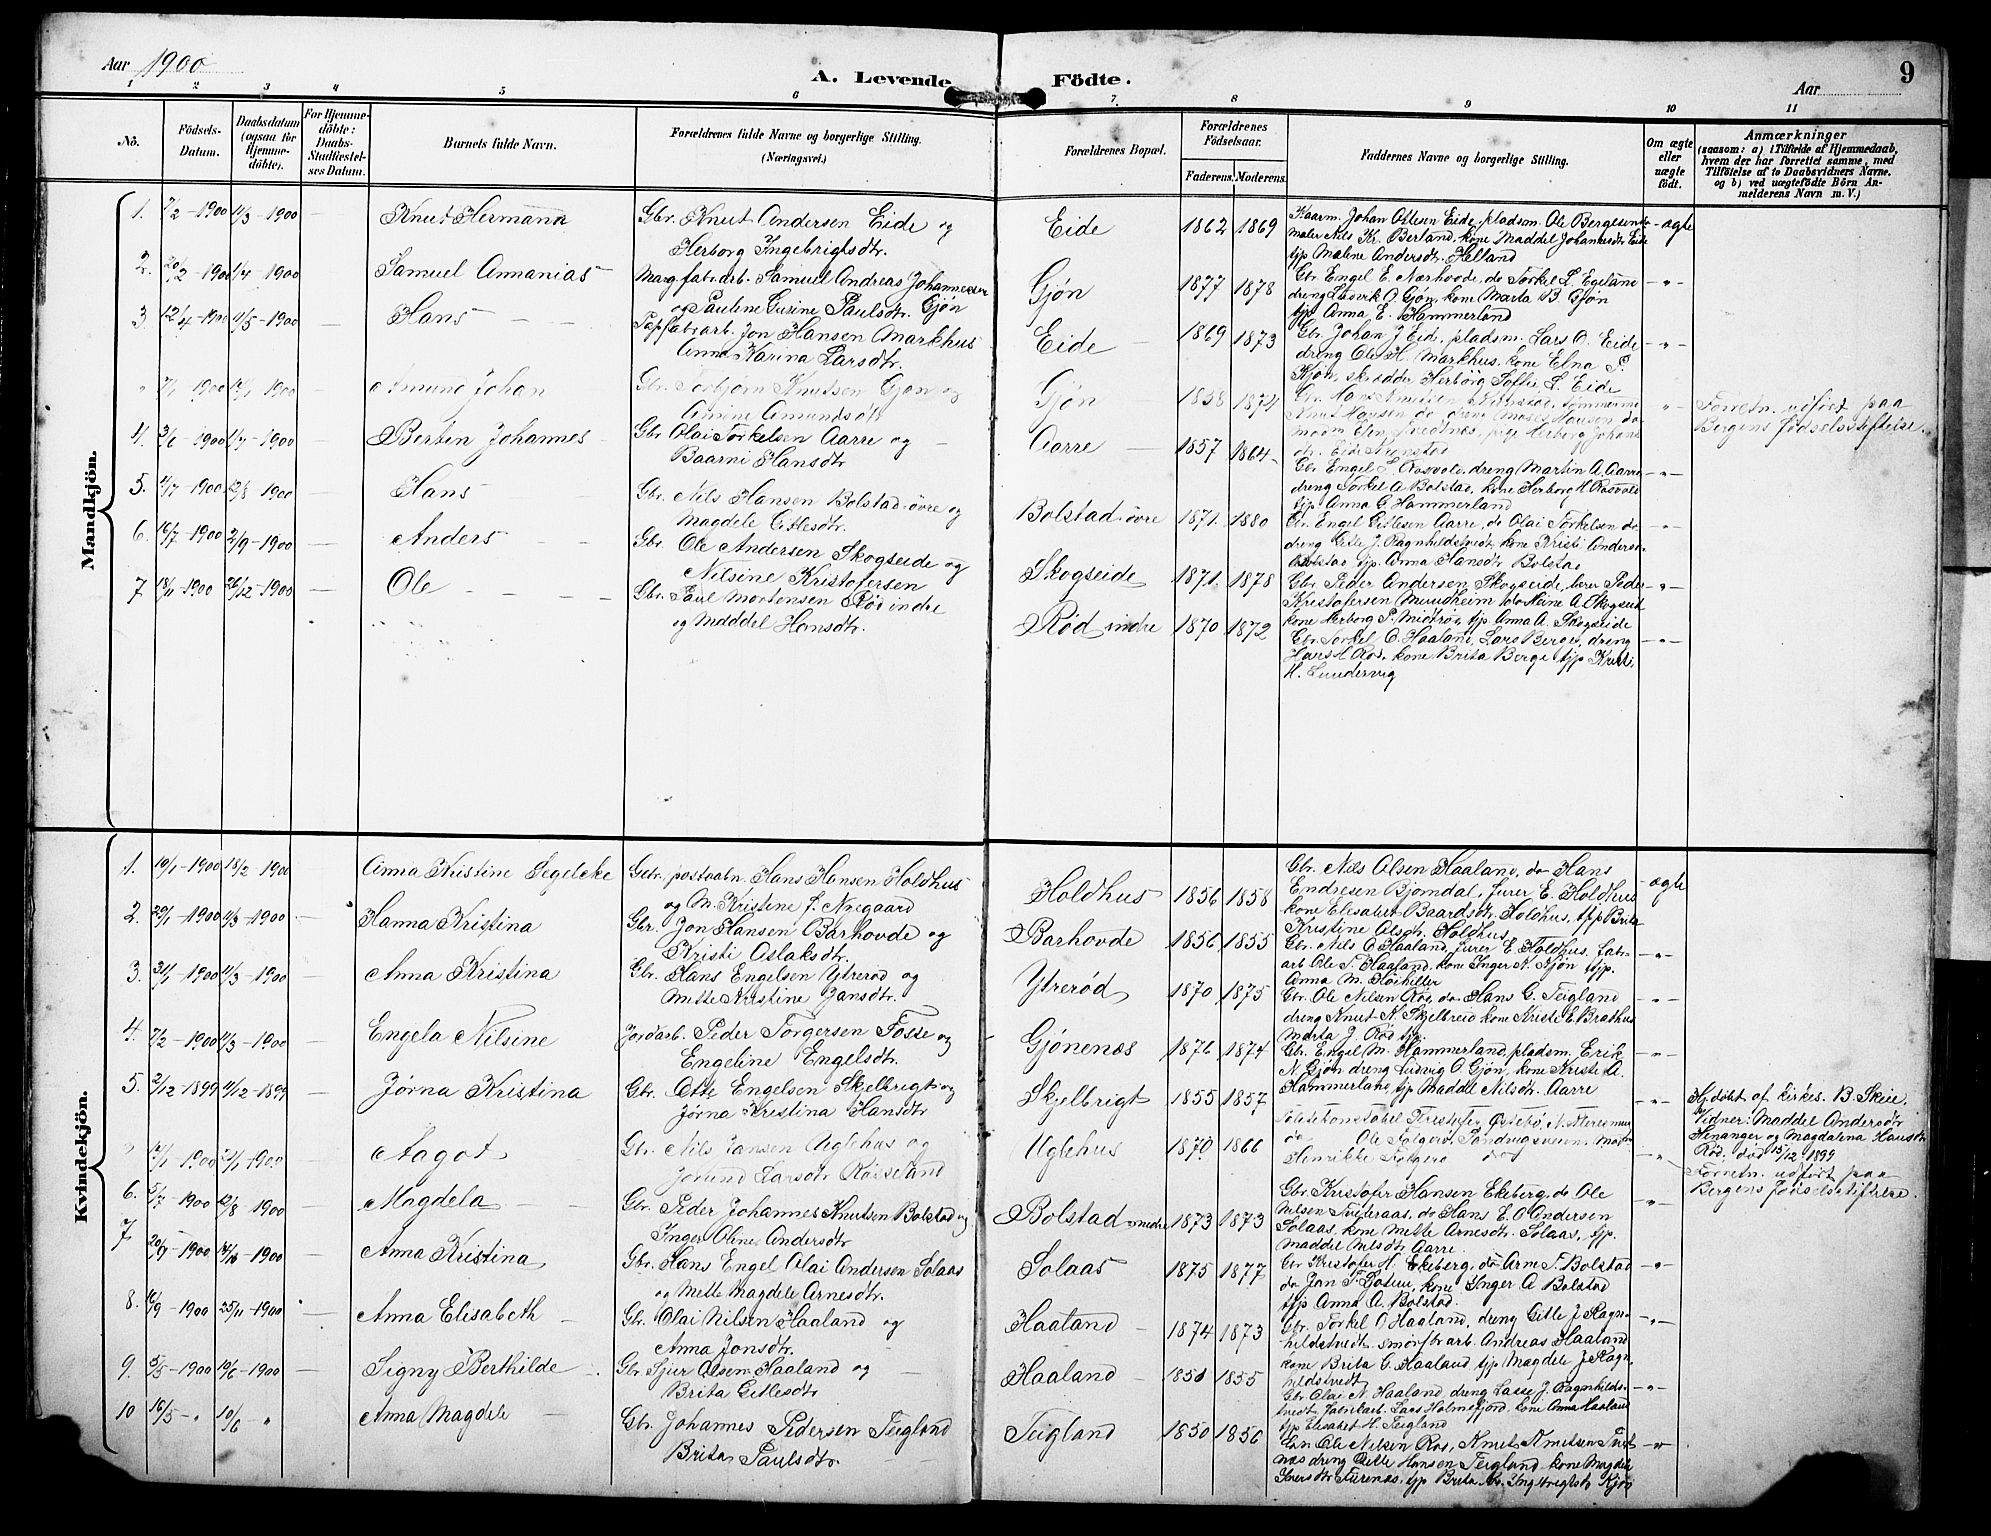 Aar 1900
A. Levende Födte.
Aar
9
1 2 3 4 5 6 7 8 9 10 11
No.
Födsels-Datum.
Daabsdatum (ogsaa for Hjemme-döbte).
For Hjemme-döbte: Daabs-Stadfæstel-ses Datum.
Barnets fulde Navn.
Forældrenes fulde Navne og borgerlige Stilling. (Næringsvei.)
Forældrenes Bopæl.
Forældrenes Födselsaar.
Faderens. Moderens.
Faddernes Navne og borgerlige Stilling.
Om ægte eller uægte födt.
Anmærkninger
(saasom: a) i Tilfælde af Hjemmedaab, hvem der har forrettet samme, med Tilföielse af to Daabsvidners Navne. og b) ved uægtefödte Börn An-melderens Navn m. V.)
Mandkjön.
1. 7/2-1900 11/3-1900 — Knut Hermann Gbr. Knut Andersen Eide og
Herborg Ingebrigtsdtr. Eide 1862 1869 Kaarm. Johan Ottesen Eide, pladsm. Ole Bergesen do
maler Nils Kr. Berland, kone Maddel Johannesdtr Eide
tjp Malene Andersdtr. Helland — ægte
2. 20/2-1900 1/4-1900 — Samuel Annanias Marg.fabr.arb. Samuel Andreas Johannessen
og Pauline Gurine Paulsdtr. Gjøn Gjøn 1877 1878 Gbr. Engel E. Nærhovde, do Torkel L. Egeland
dreng Ludvik O. Gjøn, kone Marta B. Gjøn
tjp Anna E. Hammerland — " —
3 12/4-1900 1/5-1900 — Hans Papfabr.arb. Jon Hansen Markhus
Anna Karina Larsdtr. Eide 1869 1873 Gbr Johan J Eid, pladsm. Lars O. Eide
dreng Ole H. Markhus, kone Elna P.
Kjøn, skrædder Herborg Sofie L. Eide — " —
" 7/1 1900 — Amund Johan Gbr. Torbjørn Knutsen Gjøn og
Amine Amundsdtr Gjøn 1858 1874 Gbr. Hans Knutsen
Forretn. udført paa
Bergens fødselsstiftelse.
4. 3/6-1900 1/7-1900 — Berten Johannes Gbr. Olai Torkelsen Aarre og
Baarni Hansdtr Aarre 1857 1864 Gbr Engel L. Røsvold, dreng Martin A. Aarre
dreng Torkel A Bolstad, kone Herborg H. Røsvold
tjp Anna G. Hammerland — " —
5. 1900 12/8-1900 — Hans Gbr. Nils Hansen Bolstad øvre og
Magdele Gitlesdtr. Bolstad øvre 1871. 1880 Gbr. Engel Gitlesen Aarre, do Olai Torkelsen do
dreng Gitle J. Ragnhildstvedt, kone Kristi Anders
Bolstad tjp. Anna Hansdtr Bolstad — " —
6. 16/7-1900 2/9-1900 — Anders Gbr. Ole Andersen Skogseide og
Nilsine Kristofersen Skogseide 1871. 1878 Gbr. Peder Andersen Skogseide, lærer Peder
Kristofersen
kone Herborg P. Midtrø, tjp Anna A. Skogseide — " —
7 18/11-1900 26/12-1900 — Ole Gbr. Paul Mortensen Rød indre
og Maddel Hansdtr. Rød indre 1870 1872 Gbr. Torkel O. Haaland, Lars Berge, dreng
Hans H Rød, kone Brita Berge tjp Kristi
H. Lundervig — " —
Kvindekjön.
1. 19/1-1900 18/2-1900 Anna Kristine Segelcke Gbr. postaabn. Hans Hansen Holdhus
og M. Kristine f. Nygaard Holdhus 1856 1858 Gbr. Nils Olsen Haaland, do Hans
Endresen Bjørndal, Furer E. Holdhus
kone Elisabet Baardsdtr. Holdhus, tjp Brita
Kristine Olsdtr. Holdhus — ægte
2. 29/1-1900 11/3-1900 — Hanna Kristina Gbr. Jon Hansen Barhovde og
Kristi Oslaksdtr. Barhovde 1856 1855 Gbr. Nils O Haaland, Furer E. Holdhus, fab-
arb Ole S. Haaland, kone Inger N. Kjøn tjp.
Anna M. — " —
3. 31/1-1900 11/3-1900 — Anna Kristina Gbr. Hans Engelsen Ytrerød og
Mette Kristine Jansdtr. Ytrerød 1870 1875 Gbr. Ole Nilsen Rød, do Hans G. Teigland
dreng Knut N. Skjelbreid kone Kristi E. Brathus
Marta J. Rød tjp. — " —
4. 7/2-1900 11/3-1900 — Engela Nilsine Jordarb. Peder Torgersen Fosse og
Engeline Engelsdtr. Gjønenæs 1876 1874 Gbr. Engel M. Hammerland, pladsm. Erik
N. Gjøn dreng Ludvig O Gjøn, kone Kristi A.
Hammerland, tjp Maddel Nilsdtr. Aarre — " —
5. 2/12-1899 11/12-1899 — Jørna Kristina Gbr. Otte Engelsen Skjelbrigt og
Jørna Kristina Hansdtr Skjelbrigt 1855 1857 — " — Hj.døbt af kirkes. B. Skeie
Vidner: Maddel Andersdtr
Henanger og Magdalena Hansdtr
Rød. død 15/12 1899
" 1900 1900 Aagot Gbr. Nils Jansen Uglehus og
Jorund Larsdtr Røsseland Uglehus 1870 1866 Politikonstabel Kristofer
do Ole Solgerd
Henrikke Solgerd — " — Forretn. udført paa
Bergens fødselsstiftelse.
6. 5/7-1900 12/8-1900 Magdela Gbr. Peder Johannes Knutsen Bolstad og
Inger Oline Andersdtr Bolstad nedre 1873 1873 Gbr. Kristofer Hansen Ekeberg, do Ole
Nilsen Tveiteraas, do Hans E. O Andersen
Solaas, kone Mette Arnesdtr. Solaas, tjp.
Maddel Nilsdtr Aarre. — " —
7 20/9-1900 14/10-1900 Anna Kristina Gbr. Hans Engel Olai Andersen Solaas
og Mette Magdele Arnesdtr. Solaas 1875 1877 Gbr Kristofer H. Ekeberg, do Arne T. Bolstad
do Jan kone Inger A Bolstad
tjp Anna A. Bolstad. — " —
8. 16/9-1900 25/11-1900 — Anna Elisabeth Gbr. Olai Nilsen Haaland og
Anna Jonsdtr. Haaland 1874 1873 Gbr. Torkel O Haaland, dreng Gitle J Ragn-
hildstvedt smørfbr arb. Andreas Haaland
kone Brita G. Haaland tjp Magdele J. Ragn-
hildstvedt — " —
9. 5/5-1900 10/6-1900 Signy Berthilde Gbr Sjur Olsen Haaland og
Brita Gitlesdtr Haaland 1851 1855 Gbr. Olai N. Haaland, dreng Lasse J. Ragnhilds-
tvedt Fabrikarb. Lars Holmefjord, kone Anna Haaland
tjp Elisabet H. Teigland — " —
10 16/5- " 10/6 " Anna Magdele Gbr. Johannes Pedersen Teigland
Brita Paulsdtr. Teigland 1850 1856 Gbr. Ole Nilsen Rød, Knut Knutsen Turt
næs dreng Gitle Hansen Teigland kone Magdele
Turenæs, tjp Brita Ingebrigtsdtr Kjøn — " —